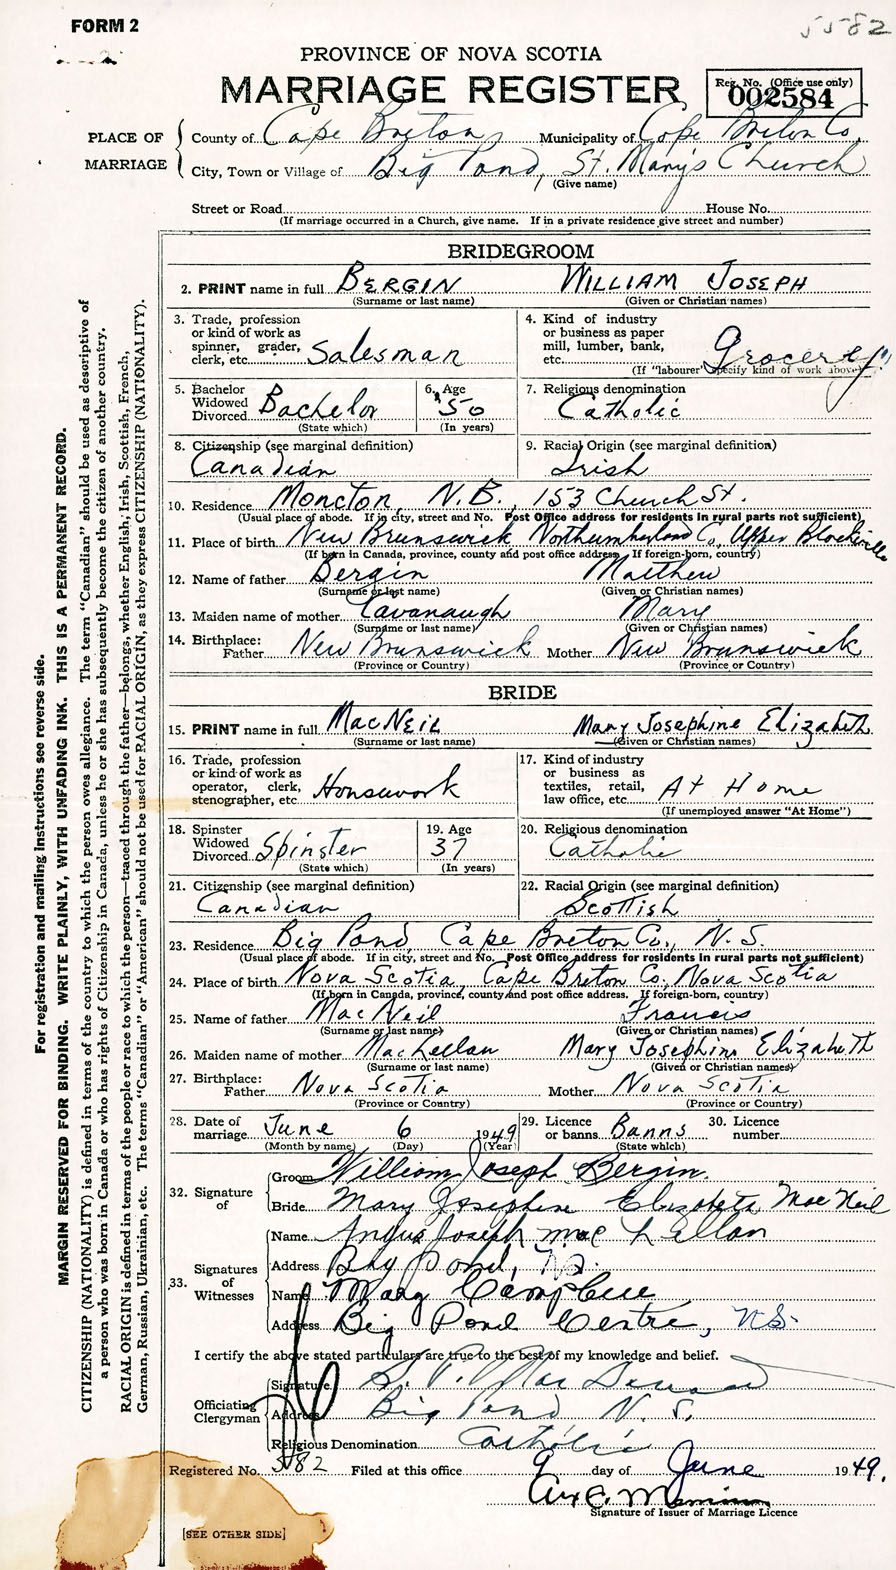 FORM 2
5582
PROVINCE OF NOVA SCOTIA
MARRIAGE REGISTER
Reg. No. (Office use only)
002584
PLACE OF MARRIAGE
County of Cape Breton Municipality of Cape Breton Co.
City, Town or Village of Big Pond, St. Mary's Church
(Give name)
Street or Road House No.
(If marriage occurred in a Church, give name. If in a private residence give street and number)
BRIDEGROOM
2. PRINT name in full BERGIN WILLIAM JOSEPH
(Surname or last name) (Given or Christian names)
3. Trade, profession or kind of work as spinner, grader, clerk, etc. Salesman
4. Kind of industry or business as paper mill, lumber, bank, etc. Grocery
(If "labourer" specify kind of work above)
5. Bachelor Widowed Divorced Bachelor
(State which)
6. Age 50
(In years)
7. Religious denomination
Catholic
8. Citizenship (see marginal definition)
Canadian
9. Racial Origin (see marginal definition)
Irish
10. Residence Moncton, N.B., 153 Church St.
(Usual place of abode. If in city, street and No. Post Office address for residents in rural parts not sufficient)
11. Place of birth New Brunswick Northumberland Co, Upper Blackville
(If born in Canada, province, county and post office address. If foreign-born, country)
12. Name of father Bergin Matthew
(Surname or last name) (Given or Christian names)
13. Maiden name of mother Cavanaugh Mary
(Surname or last name) (Given or Christian names)
14. Birthplace:
Father New Brunswick Mother New Brunswick
(Province or Country) (Province or Country)
BRIDE
15. PRINT name in full MacNeil Mary Josephine Elizabeth
(Surname or last name) (Given or Christian names)
16. Trade, profession or kind of work as operator, clerk, stenographer, etc. Housework
17. Kind of industry or business as textiles, retail, law office, etc. At Home
(If unemployed answer "At Home")
18. Spinster Widowed Divorced Spinster
(State which)
19. Age
37
(In years)
20. Religious denomination
Catholic
21. Citizenship (see marginal definition)
Canadian
22. Racial Origin (see marginal definition)
Scottish
23. Residence Big Pond, Cape Breton Co., N.S.
(Usual place of abode. If in city, street and No. Post Office address for residents in rural parts not sufficient)
24. Place of birth Nova Scotia, Cape Breton Co., Nova Scotia
(If born in Canada, province, county and post office address. If foreign-born, country)
25. Name of father MacNeil Francis
(Surname or last name) (Given or Christian names)
26. Maiden name of mother MacLellan Mary Josephine Elizabeth
(Surname or last name) (Given or Christian names)
27. Birthplace:
Father Nova Scotia Mother Nova Scotia
(Province or Country) (Province or Country)
28. Date of marriage June 6 1949
(Month by name) (Day) (Year)
29. Licence or banns Banns
(State which)
30. Licence number
32. Signature of
Groom William Joseph Bergin.
Bride Mary Josephine Elizabeth MacNeil
33. Signatures of Witnesses
Name Angus Joseph MacLellan
Address Big Pond, N.S.
Name Mary Campbell
Address Big Pond Centre, N.S.
I certify the above stated particulars are true to the best of my knowledge and belief.
Officiating Clergyman
Signature
Address Big Pond N. S.
Religious Denomination Catholic
Registered No. 5582 Filed at this office 9 day of June 1949.
Signature of Issuer of Marriage Licence
[SEE OTHER SIDE]
For registration and mailing instructions see reverse side.
MARGIN RESERVED FOR BINDING. WRITE PLAINLY, WITH UNFADING INK. THIS IS A PERMANENT RECORD.
CITIZENSHIP (NATIONALITY) is defined in terms of the country to which the person owes allegiance. The term "Canadian" should be used as descriptive of
a person who was born in Canada or who has rights of Citizenship in Canada, unless he or she has subsequently become the citizen of another country.
RACIAL ORIGIN is defined in terms of the people or race to which the person—traced through the father—belongs, whether English, Irish, Scottish, French,
German, Russian, Ukrainian, etc. The terms "Canadian" or "American" should not be used for RACIAL ORIGIN, as they express CITIZENSHIP (NATIONALITY).